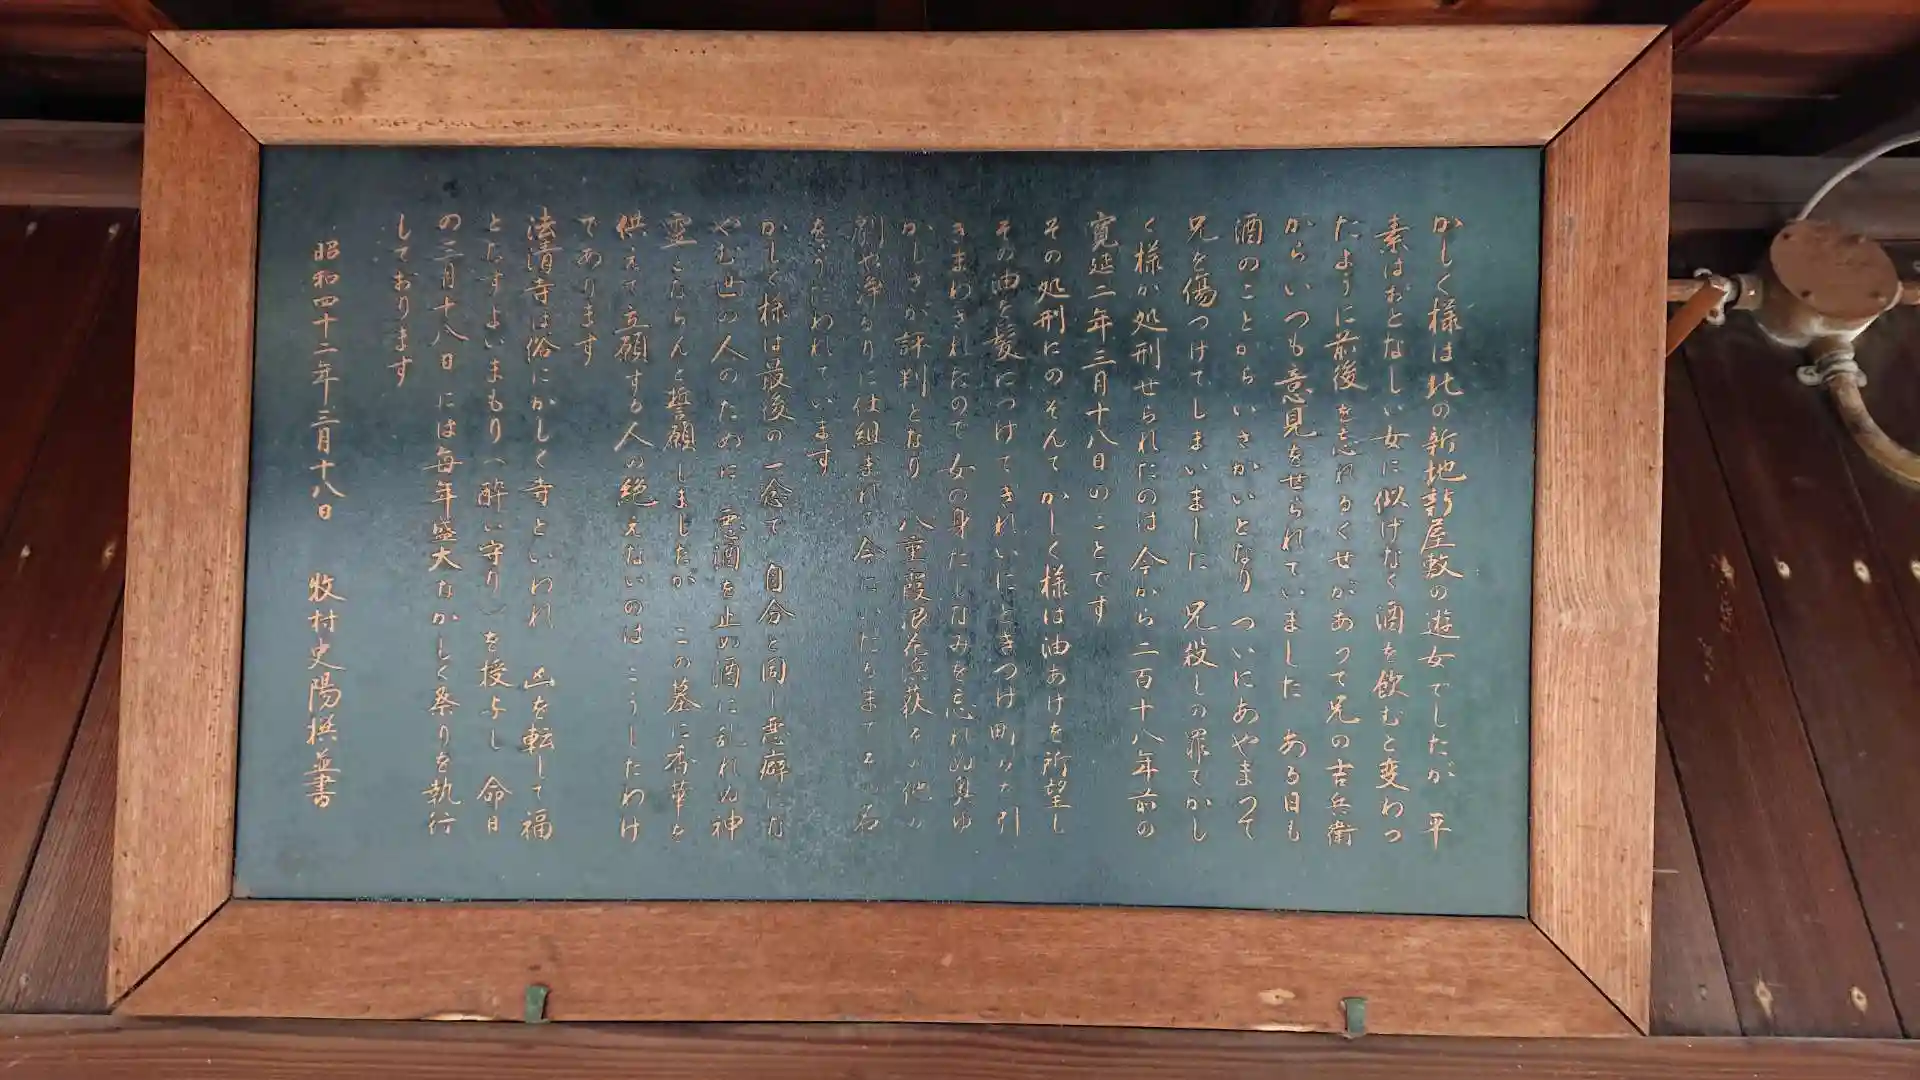 かしく様は北の新地新屋敷の遊女でしたが　平
素はおとなしい女に似けなく酒を飲むと変わっ
たように前後を忘れるくせがあって兄の吉兵衛
からいつも意見をせられていました　ある日も
酒のことからいさかいとなり　ついにあやまって
兄を傷つけてしまいました　兄殺しの罪でかし
く様が処刑せられたのは今から二百十八年前の
寛延二年三月十八日のことです
その処刑にのぞんで　かしく様は油あげを所望し
その油を髪につけてきれいにときつけ町々を引
きまわされたので　女の身だしなみを忘れぬ奥ゆ
かしさが評判となり　八重霞浪花浜荻その他の
劇や浄るりに仕組まれて今にいたるまでその名
をうたわれています
かしく様は最後の一念で　自分と同じ悪癖にな
やむ世の人のために　悪酒を止め酒に乱れぬ神
霊とならんと誓願しましたが　この墓に香華を
供えて立願する人の絶えないのは　こうしたわけ
であります
法清寺は俗にかしく寺といわれ　凶を転じて福
となすよいまもり（酔い守り）を授与し　命日
の三月十八日には毎年盛大なかしく祭りを執行
しております
昭和四十二年三月十八日　牧村史陽撰並書